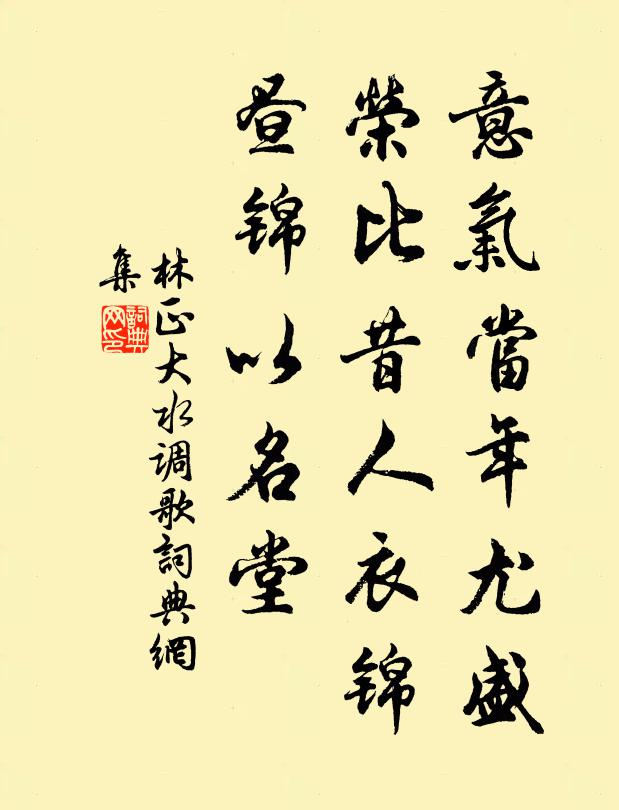 意氣當年尤盛
榮比昔人衣锦
昼锦以名堂
林正大水调歌詞典網
集
詞典
网印